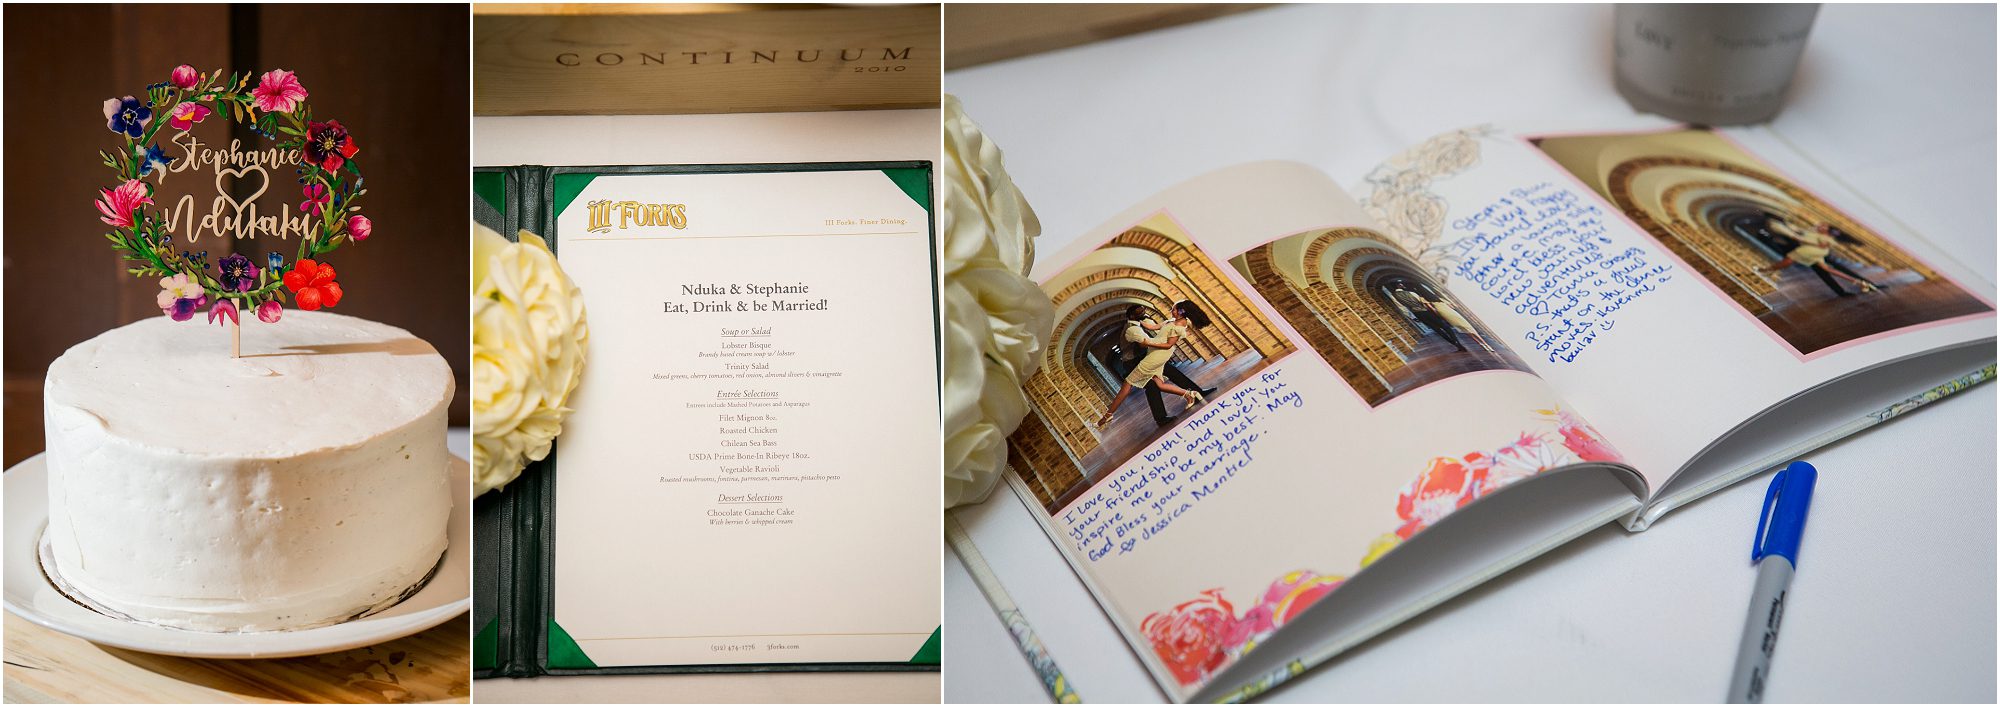 Stephanie
Ndukaku
CONTINUUM
2010
III FORKS
III Forks. Finer Dining.
Nduka & Stephanie
Eat, Drink & be Married!
Soup or Salad
Lobster Bisque
Brandy based cream soup w/ lobster
Trinity Salad
Mixed greens, cherry tomatoes, red onion, almond slivers & vinaigrette
Entrée Selections
Entrees include Mashed Potatoes and Asparagus
Filet Mignon 8oz.
Roasted Chicken
Chilean Sea Bass
USDA Prime Bone-In Ribeye 18oz.
Vegetable Ravioli
Roasted mushrooms, fontina, parmesan, marinara, pistachio pesto
Dessert Selections
Chocolate Ganache Cake
With berries & whipped cream
(512) 474-1776 3forks.com
I Love you, both! Thank you for
your friendship and love! You
inspire me to be my best. May
God Bless your marriage.
Jessica Montiel
Steph &
I'm very happy
you found each
other a lovely
couple may the
Lord bless your
new journey &
adventures
Tanna Graves
P.S. that's a great
stunt on the dance
moves.
Love